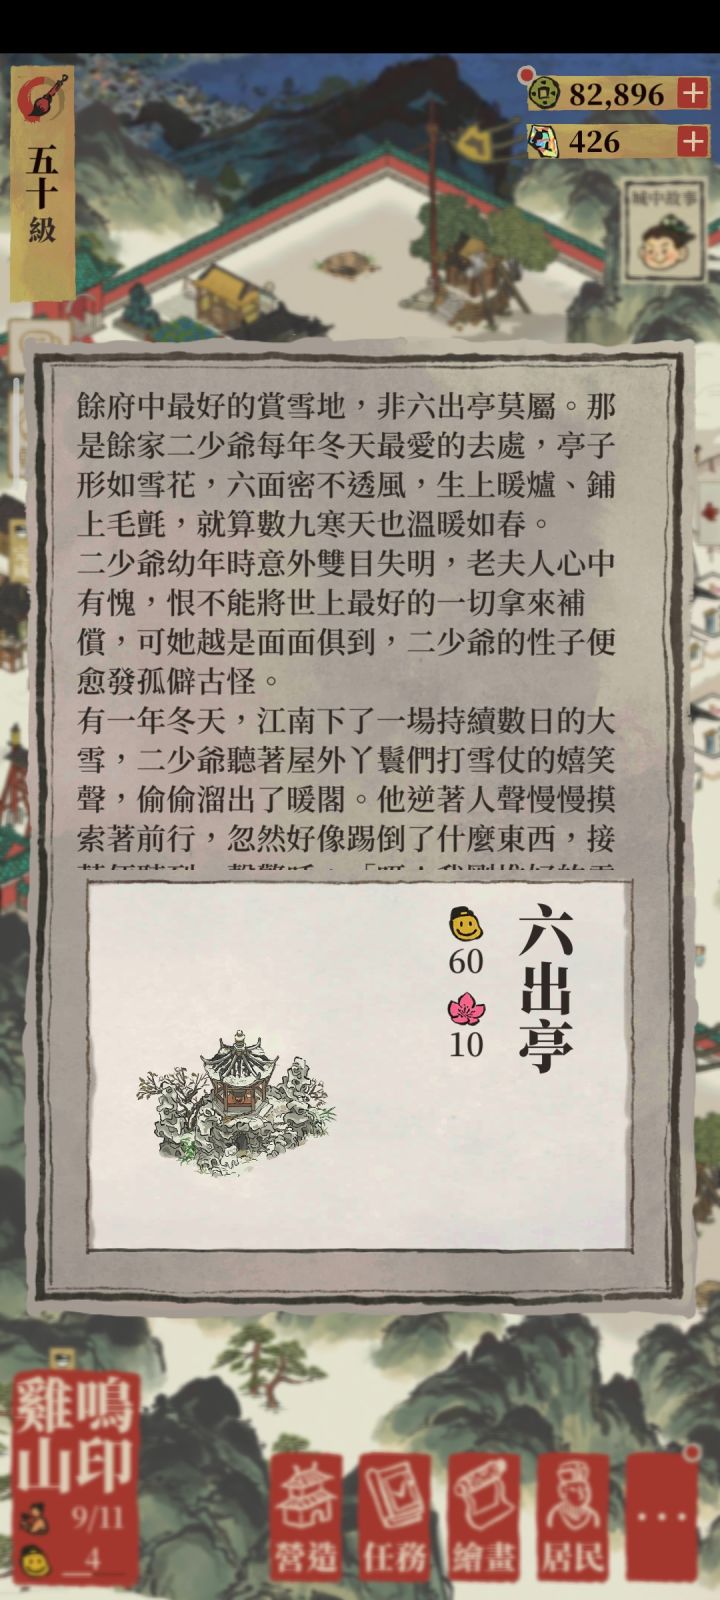 五十級
82,896
426
城中故事
餘府中最好的賞雪地，非六出亭莫屬。那
是餘家二少爺每年冬天最愛的去處，亭子
形如雪花，六面密不透風，生上暖爐、鋪
上毛氈，就算數九寒天也溫暖如春。
二少爺幼年時意外雙目失明，老夫人心中
有愧，恨不能將世上最好的一切拿來補
償，可她越是面面俱到，二少爺的性子便
愈發孤僻古怪。
有一年冬天，江南下了一場持續數日的大
雪，二少爺聽著屋外丫鬟們打雪仗的嬉笑
聲，偷偷溜出了暖閣。他逆著人聲慢慢摸
索著前行，忽然好像踢倒了什麼東西，接
六出亭
60
10
雞鳴
山印
9/11
4
營造
任務
繪畫
居民
...